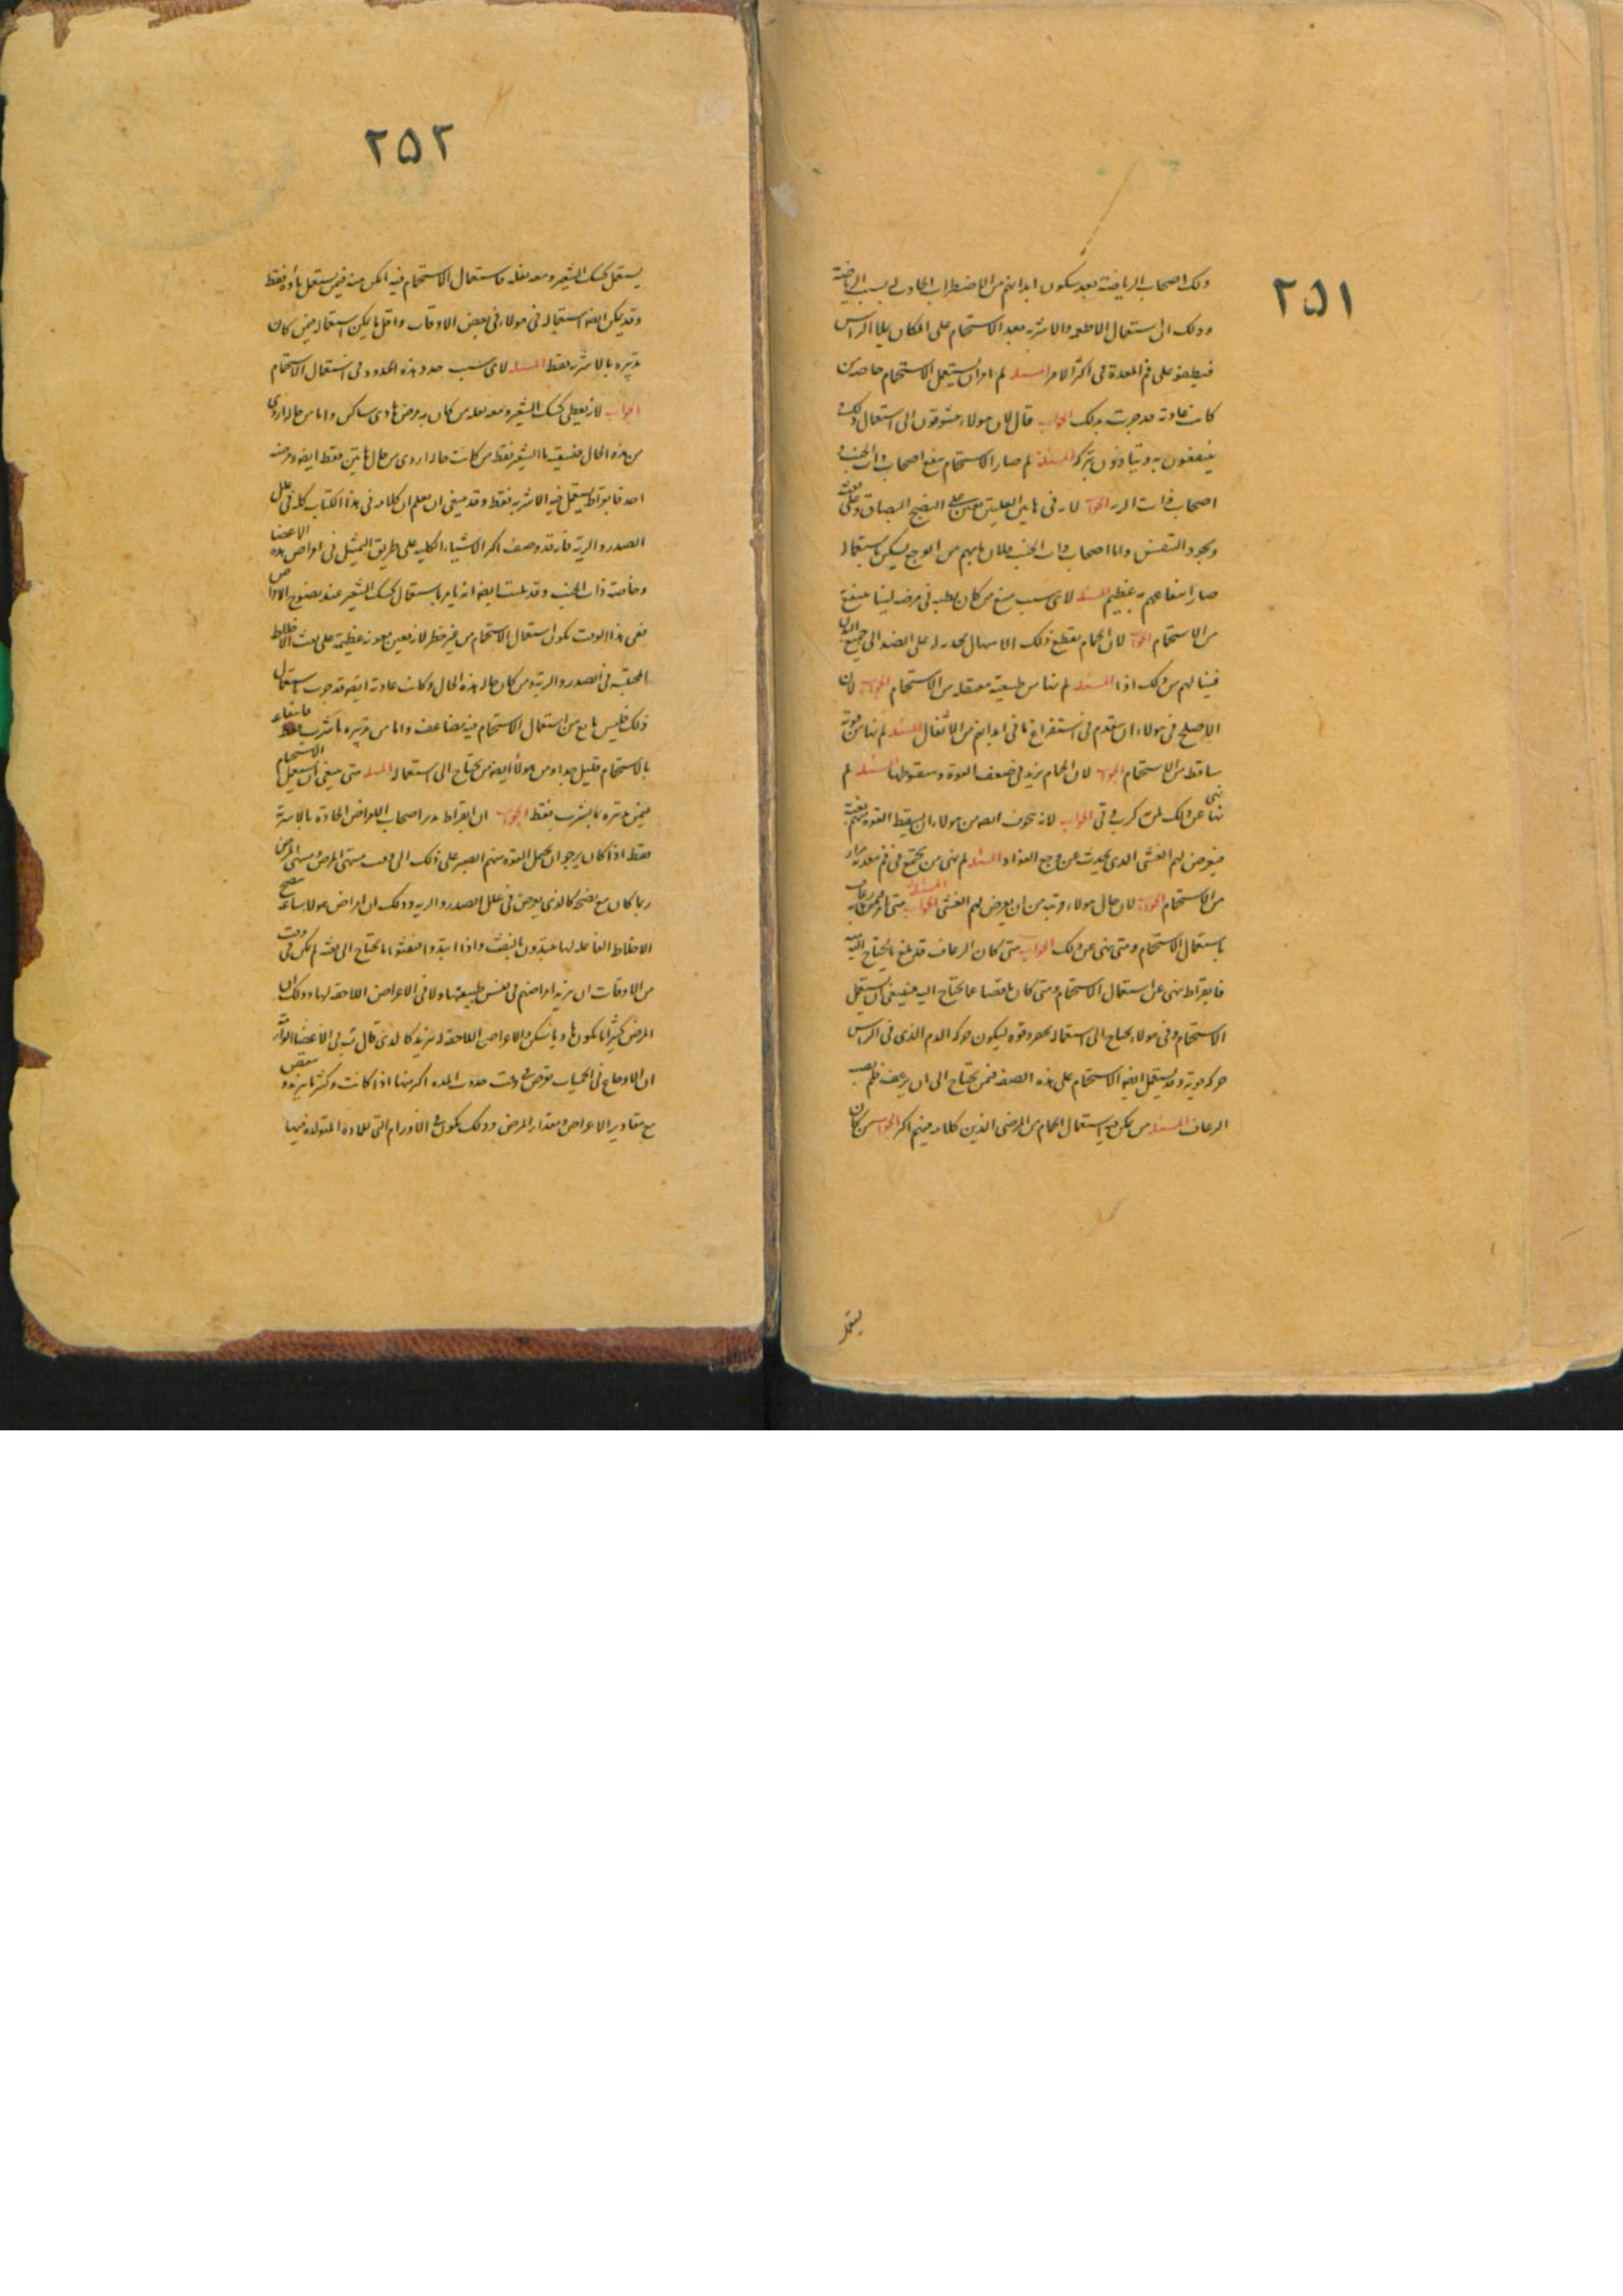 ٢٥١
وذلك اصحاب الرياضة بعد سكون ابدانهم من الاضطراب الحادث بسبب الرياضة
وذلك ان استعمال الاطعمه والاشربه بعد الاستحمام على المكان يملا الراس
فيطفو على فم المعدة فى اكثر الامر المسئله لم امر ان يستعمل الاستحمام خاصه من
كانت عادته قد جرت بذلك الجواب قال لان هولاء يتشوقون الى استعمال ذلك و
ينتفعون به ويتاذون بتركه المسئله لم صار الاستحمام ينفع اصحاب ذات الجنب و
اصحاب ذات الريه الجواب لانه فى هاتين العلتين يعين على النضج البصاق وعلى نفثه
وبجود التنفس واما اصحاب ذات الجنب فلان ما بهم من الوجع يسكن باستعماله
صار انتفاعهم به عظيم المسئله لاى سبب منع من كان بطنه فى مرضه لينا منعه
من الاستحمام الجواب لان الحمام يقطع ذلك الاسهال بجذبه له على الضد الى جميع البدن
فينالهم من ذلك اذا المسئله لم نها من طبيعته معتقله من الاستحمام الجواب لان
الاصلح فى هولاء ان يتقدم فى استفراغ ما فى ابدانهم من الاثفال المسئله لم نها من قوته
ساقطه من الاستحمام الجواب لان الحمام يزيد فى ضعف القوة وسقوطها المسئله لم
نها عن ذلك لمن به كرب وقى الجواب لانه يخوف ايضه من هولاء ان يسقط القوه منهم بغتة
فيعرض لهم الغشى الذى يحدث عن وجع الفؤاد المسئله لم نهى من يجتمع فى فم معدته مرار
من الاستحمام الجواب لان حال هولاء قريبة من ان يعرض لهم الغشى المسئله متى امر من به رعاف
باستعمال الاستحمام ومتى نهى عن ذلك الجواب متى كان الرعاف قد بلغ ما يحتاج اليه
فابقراط نهى عن استعمال الاستحمام ومتى كان ناقصا عما يحتاج اليه فينبغى ان يستعمل
الاستحمام وفى هولاء يحتاج الى استعماله بحمر وقوه ليكون حركه الدم الذى فى الراس
حركه قويه وقد يستعمل ايضه الاستحمام على هذه الصفه فيمن يحتاج الى ان يرعف فلم يصب
الرعاف المسئله من يمكن فيه استعمال الحمام من المرضى الذين كلامه فيهم اكثر الجواب من كان
يستعمل
٢٥٢
يستعمل كشك الشعير ومعه ثفله فاستعمال الاستحمام فيه امكن منه فيمن يستعمل ماؤه فقط
وقد يمكن ايضه استعماله فى هولاء فى بعض الاوقات واقل ما يمكن استعماله فيمن كان
تدبيره بالاشربه فقط المسئله لاى سبب حدد هذه الحدود فى استعمال الاستحمام
الجواب لانه يعطى كشك الشعير ومعه ثفله من كان به مرض هادى ساكن واما من حاله اردى
من هذه الحال فيسقيه ماء الشعير فقط من كانت حاله اردى من حال هاتين فقط ايضه ومرضه
احد فابقراط يستعمل فيه الاشربه فقط وقد ينبغى ان تعلم ان كلامه فى هذا الكتاب كله فى علل
الصدر والريه فانه قد وصف اكثر الاشياء الكليه على طريق التمثيل فى امراض هذه الاعضا
وخاصته ذات الجنب وقد علمت ايضه انه يامر باستعمال كشك الشعير عند نضج الامراض
ففى هذا الوقت يكون استعمال الاستحمام من غير خطر لانه يعين معونه عظيمه على نفث الاخلاط
المحتقنه فى الصدر والريه ومن كان حاله هذه الحال وكانت عادته ايضه قد جرت باستعمال
ذلك فليس مانع من استعمال الاستحمام فيه مضاعف واما من تدبيره بما يشرب فقط فانتفاعه
بالاستحمام قليل جدا ومن هولاء ايضه من يحتاج الى استعماله المسئله متى ينبغى ان يستعمل الاستحمام
فيمن تدبيره بما يشرب فقط الجواب ان ابقراط يدبر اصحاب الامراض الحادة بالاشربة
فقط اذا كان يرجو ان يحمل القوه منهم الصبر على ذلك الى وقت منتهى المرض ومنتهى المرض
ربما كان مع نضج كالذى يعرض فى علل الصدر والريه وذلك ان امراض هولاء ساعة ينضج
الاخلاط الفاعله لها يبتدون بالنفث واذا ابتدوا فنفثوا ما يحتاج الى نفثه لم يمكن فى وقت
من الاوقات ان يزيد امراضهم فى نفس طبيعتها ولا فى الاعراض اللاحقه لها وذلك ان
المرض كثيرا ما يكون هاديا ساكن والاعراض اللاحقه له تزيد كالذى قال
ان الاوجاع فى الحميات تعرض فى وقت حدوث المده اكثر منها اذا كانت وكثيرا ما يزيد و ينقص
مع مقادير الاعراض ومقدار المرض وذلك يكون فى الاورام التى للماده المتولده فيها